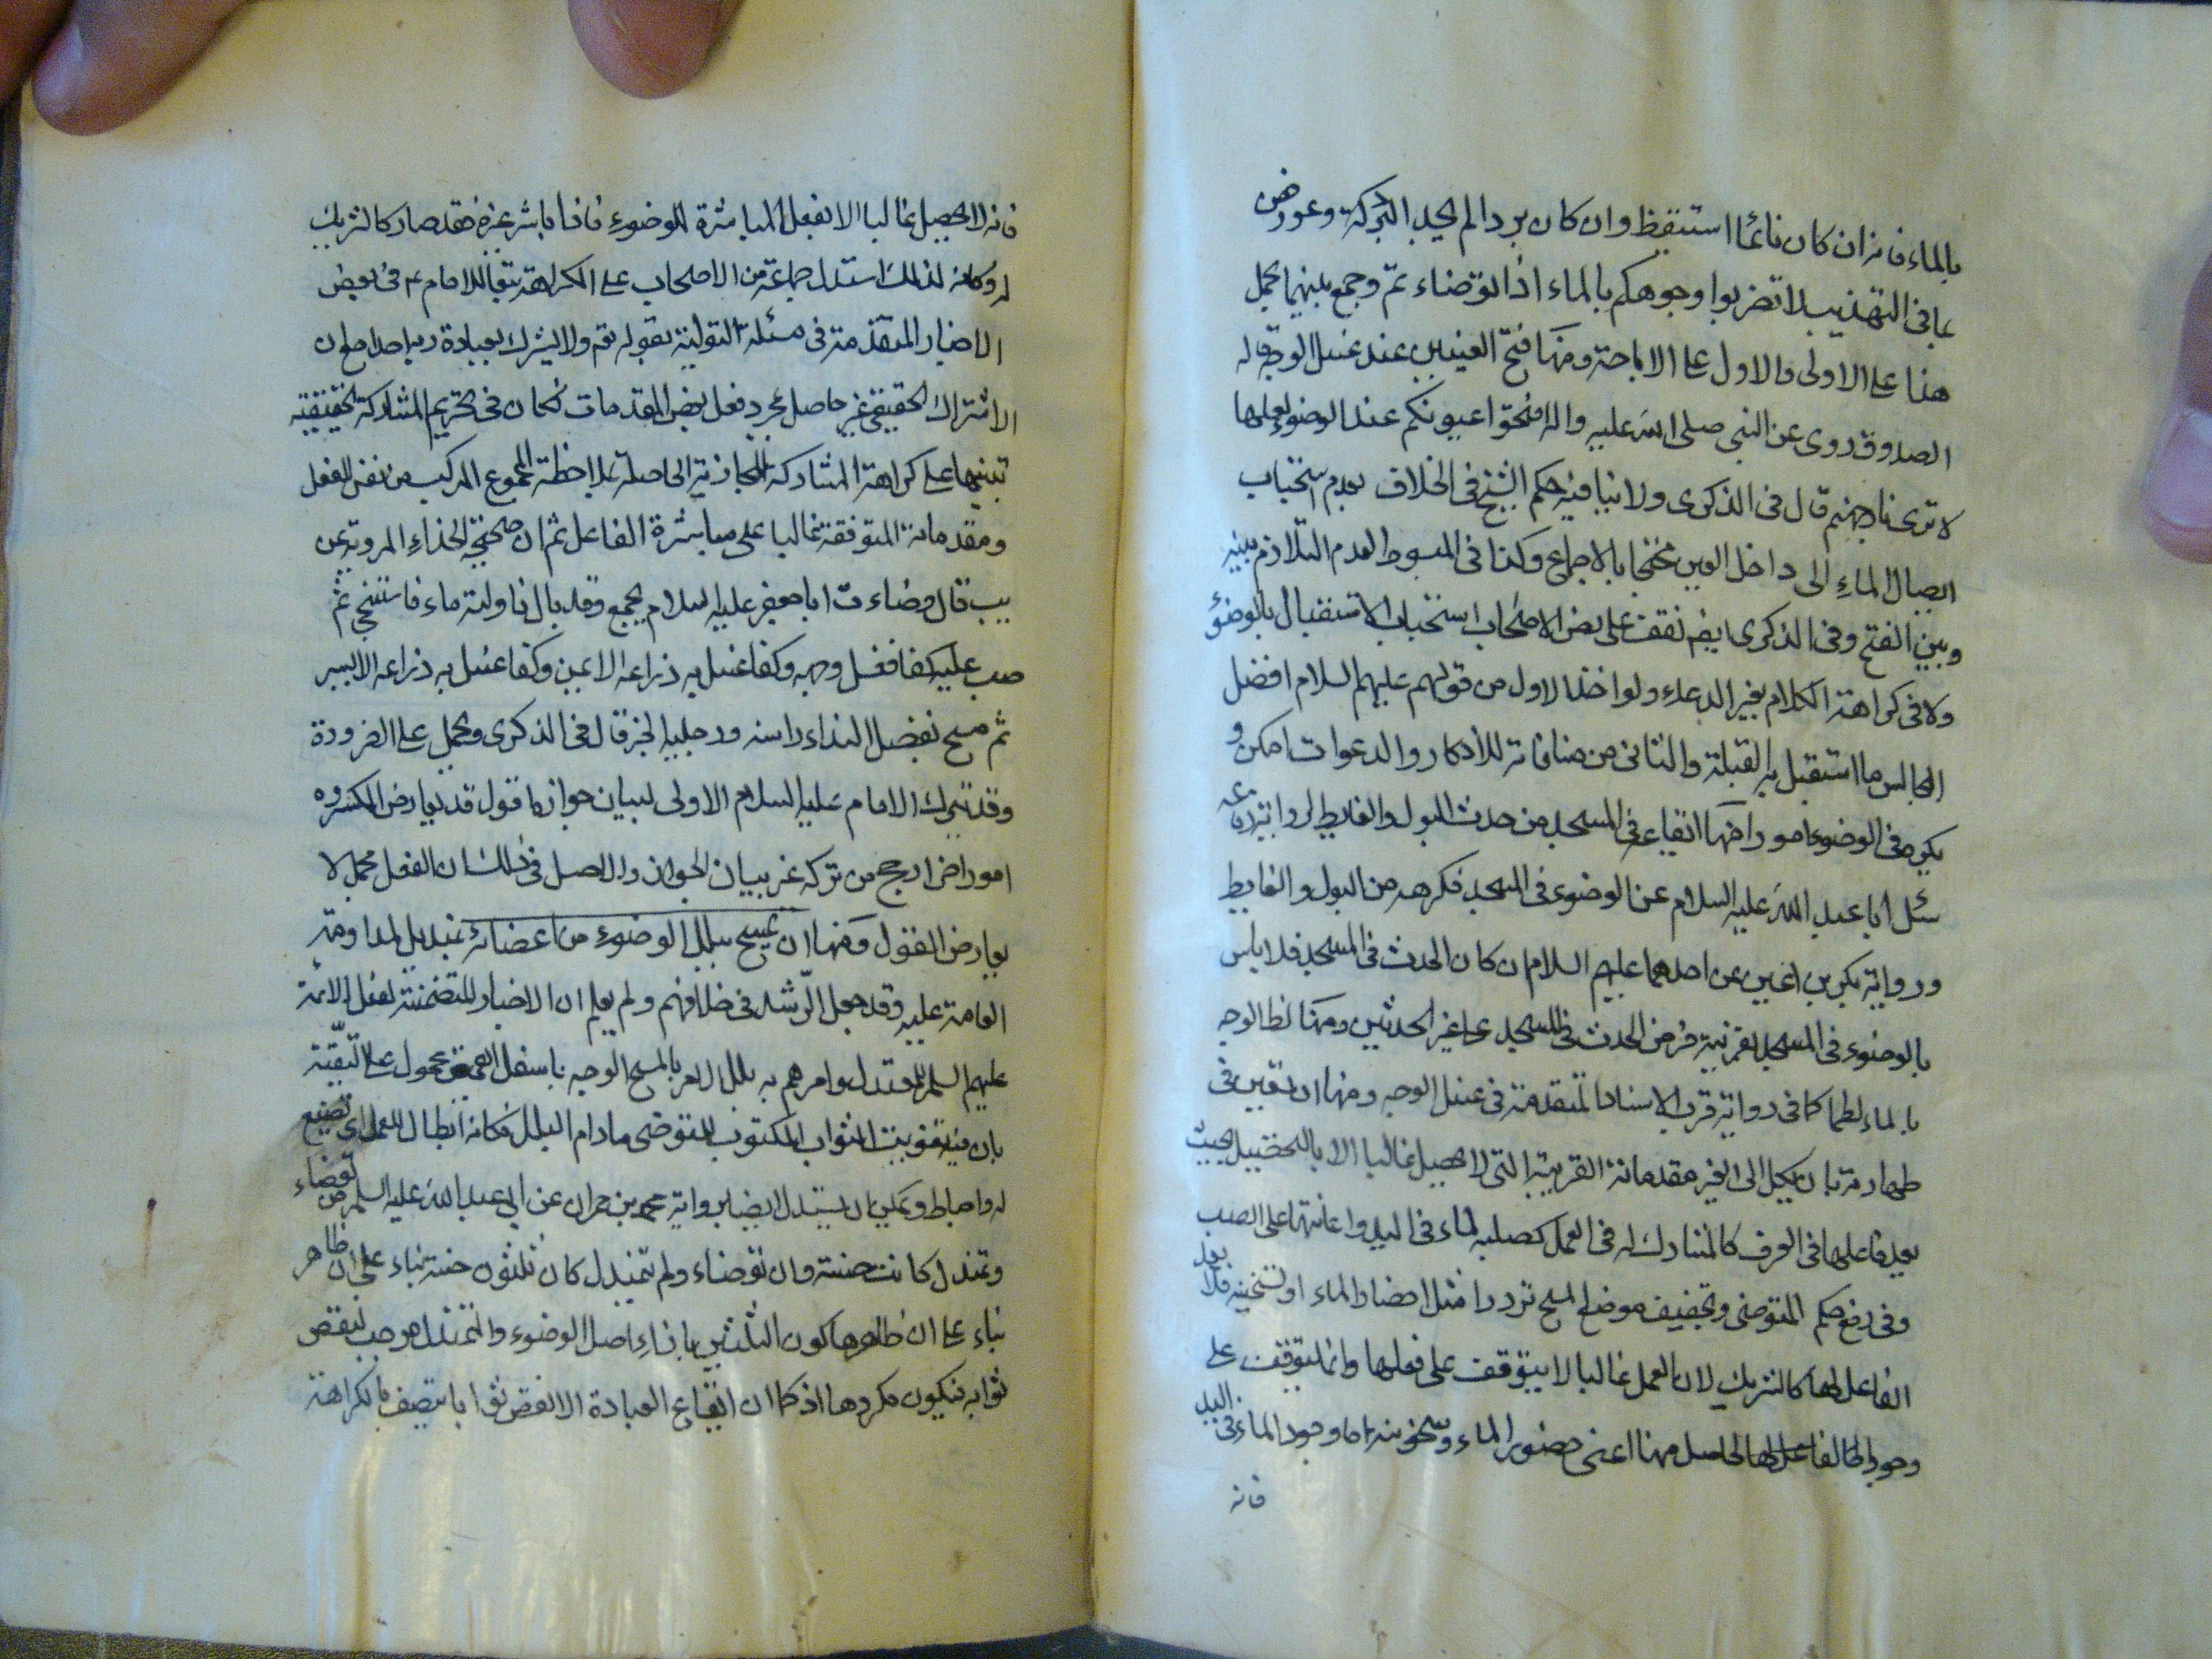 بالماء فانه ان كان نائما استيقظ وان كان بردا لم يجد البرد كه وعورض
بما فى التهذيب لا تضربوا وجوهكم بالماء اذا توضاء تم وجمع بينهما بحمل
هذا على الاولى والاول على الاباحة ومنها فتح العينين عند غسل الوجه قاله
الصدوق روى عن النبى صلى الله عليه واله افتحوا عيونكم عند الوضوء لعلها
لا ترى نار جهنم قال فى الذكرى ولا ينافيه حكم الشيخ فى الخلاف بعدم استحباب
ايصال الماء الى داخل العين محتجا بالاجماع وكذا فى المبسوط لعدم التلازم بينه
وبين الفتح وفى الذكرى ايضا نقف على نص الاصحاب استحباب الاستقبال بالوضوء
ولا فى كراهة الكلام بغير الدعاء ولو اخذ الاول من قولهم عليهم السلام افضل
المجالس ما استقبل به القبلة والثانى من منافاته للاذكار والدعوات امكن و
يكره فى الوضوء امور احدها ايقاعه فى المسجد من حدث البول والغايط لرواية رفاعه
سئل ابا عبد الله عليه السلام عن الوضوء فى المسجد فكرهه من البول والغايط
ورواية بكير بن اعين عن احدهما عليهم السلام ان كان الحدث فى المسجد فلا باس
بالوضوء فى المسجد بقرينة فرض الحدث فى المسجد على غير الحدثين ومنها لطا الوجه
بالماء لطما كما فى رواية قرب الاسناد المتقدمة فى غسل الوجه ومنها ان يستعين فى
طهارته بان يكل الى الغير مقدماته القريبة التى لا تحصيل غالبا الا بالتحصيل بحيث
يعد فاعلها فى العرف كالمشارك له فى العمل كصب الماء فى اليد واعانتها على الصب
وفى رفع حكم المتوضى وتجفيف موضع المسح تردد اما مثل احضار الماء او تسخينه فلا يعد
الفاعل لها كالشريك لان العمل غالبا لا يتوقف على فعلها وانما يتوقف على
وجود الفاعل لها الحاصل منها اعنى حضور الماء وسخونته اما وجود الماء فى اليد
فانه
فانه لا يحصل غالبا الا بفعل المباشرة للوضوء فاذا باشر غيره فقد صار كالشريك
له وكانه لذلك استدل جماعة من الاصحاب على الكراهة تبعا للامام ع فى بعض
الاخبار المتقدمة فى مسئلة التولية بقوله تع ولا يشرك بعبادة ربه احدا مع ان
الاشتراك الحقيقى غير حاصل بمجرد فعل بعض المقدمات فكان فى تحريم المشاركة الحقيقية
تنبيها على كراهة المشاركة المجازية الحاصلة بملاحظة المجموع المركب من نفس الفعل
ومقدماته المتوقفة غالبا على مباشرة الفاعل ثم ان صحيحة الحذاء المروية عن
يب قال وضاءت ابا جعفر عليه السلام بجمع وقد بال فناولته ماء فاستنجى ثم
صب عليه كفا فغسل وجهه وكفا غسل به ذراعه الايمن وكفا غسل به ذراعه الايسر
ثم مسح بفضل النداء راسه ورجليه الخبر قال فى الذكرى ويحمل على الضرورة
وقد يترك الامام عليه السلام الاولى لبيان جوازه اقول قد يعارض المكروه
امورا اخر ارجح من تركه غير بيان الجواز والاصل فى ذلك ان الفعل مجمل لا
يعارض القول ومنها ان يمسح بلل الوضوء من اعضائه بمنديل لمداومة
العامة عليه وقد جعل الرشد فى خلافهم ولم يعلم ان الاخبار المتضمنة لفعل الائمة
عليهم السلم المنديل وامرهم به بل الامر بالمسح الوجه باسفل القميص محمول على التقية
بان فيه تفويت الثواب المكتوب للمتوضى مادام البلل فكانه ابطال للعمل اى تضييع
له واحباط ويمكن ان يستدل ايضا برواية محمد بن حمران عن ابى عبد الله عليه السلم من توضاء
وتمندل كانت حسنة وان توضاء ولم يتمندل كان ثلثون حسنة بناء على ان ظاهر
بناء على ان ظاهرها كون الثلثين بازاء اصل الوضوء والتمندل موجب لنقص
ثوابه فيكون مكروها اذ كما ان ايقاع العبادة الانقص ثوابا يتصف بالكراهة